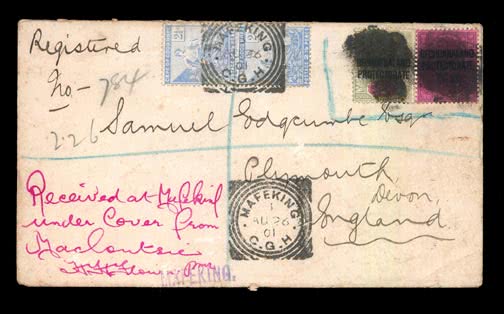 Registered
No- 784
226
2½d
MAFEKING
C.G.H
BECHUANALAND
PROTECTORATE
BECHUANALAND
PROTECTORATE
Samuel Edgcumbe Esqr
Plymouth,
Devon,
England.
Received at Mafeking
under Cover from
MAFEKING
1
AU 26
01
C.G.H
MAFEKING.